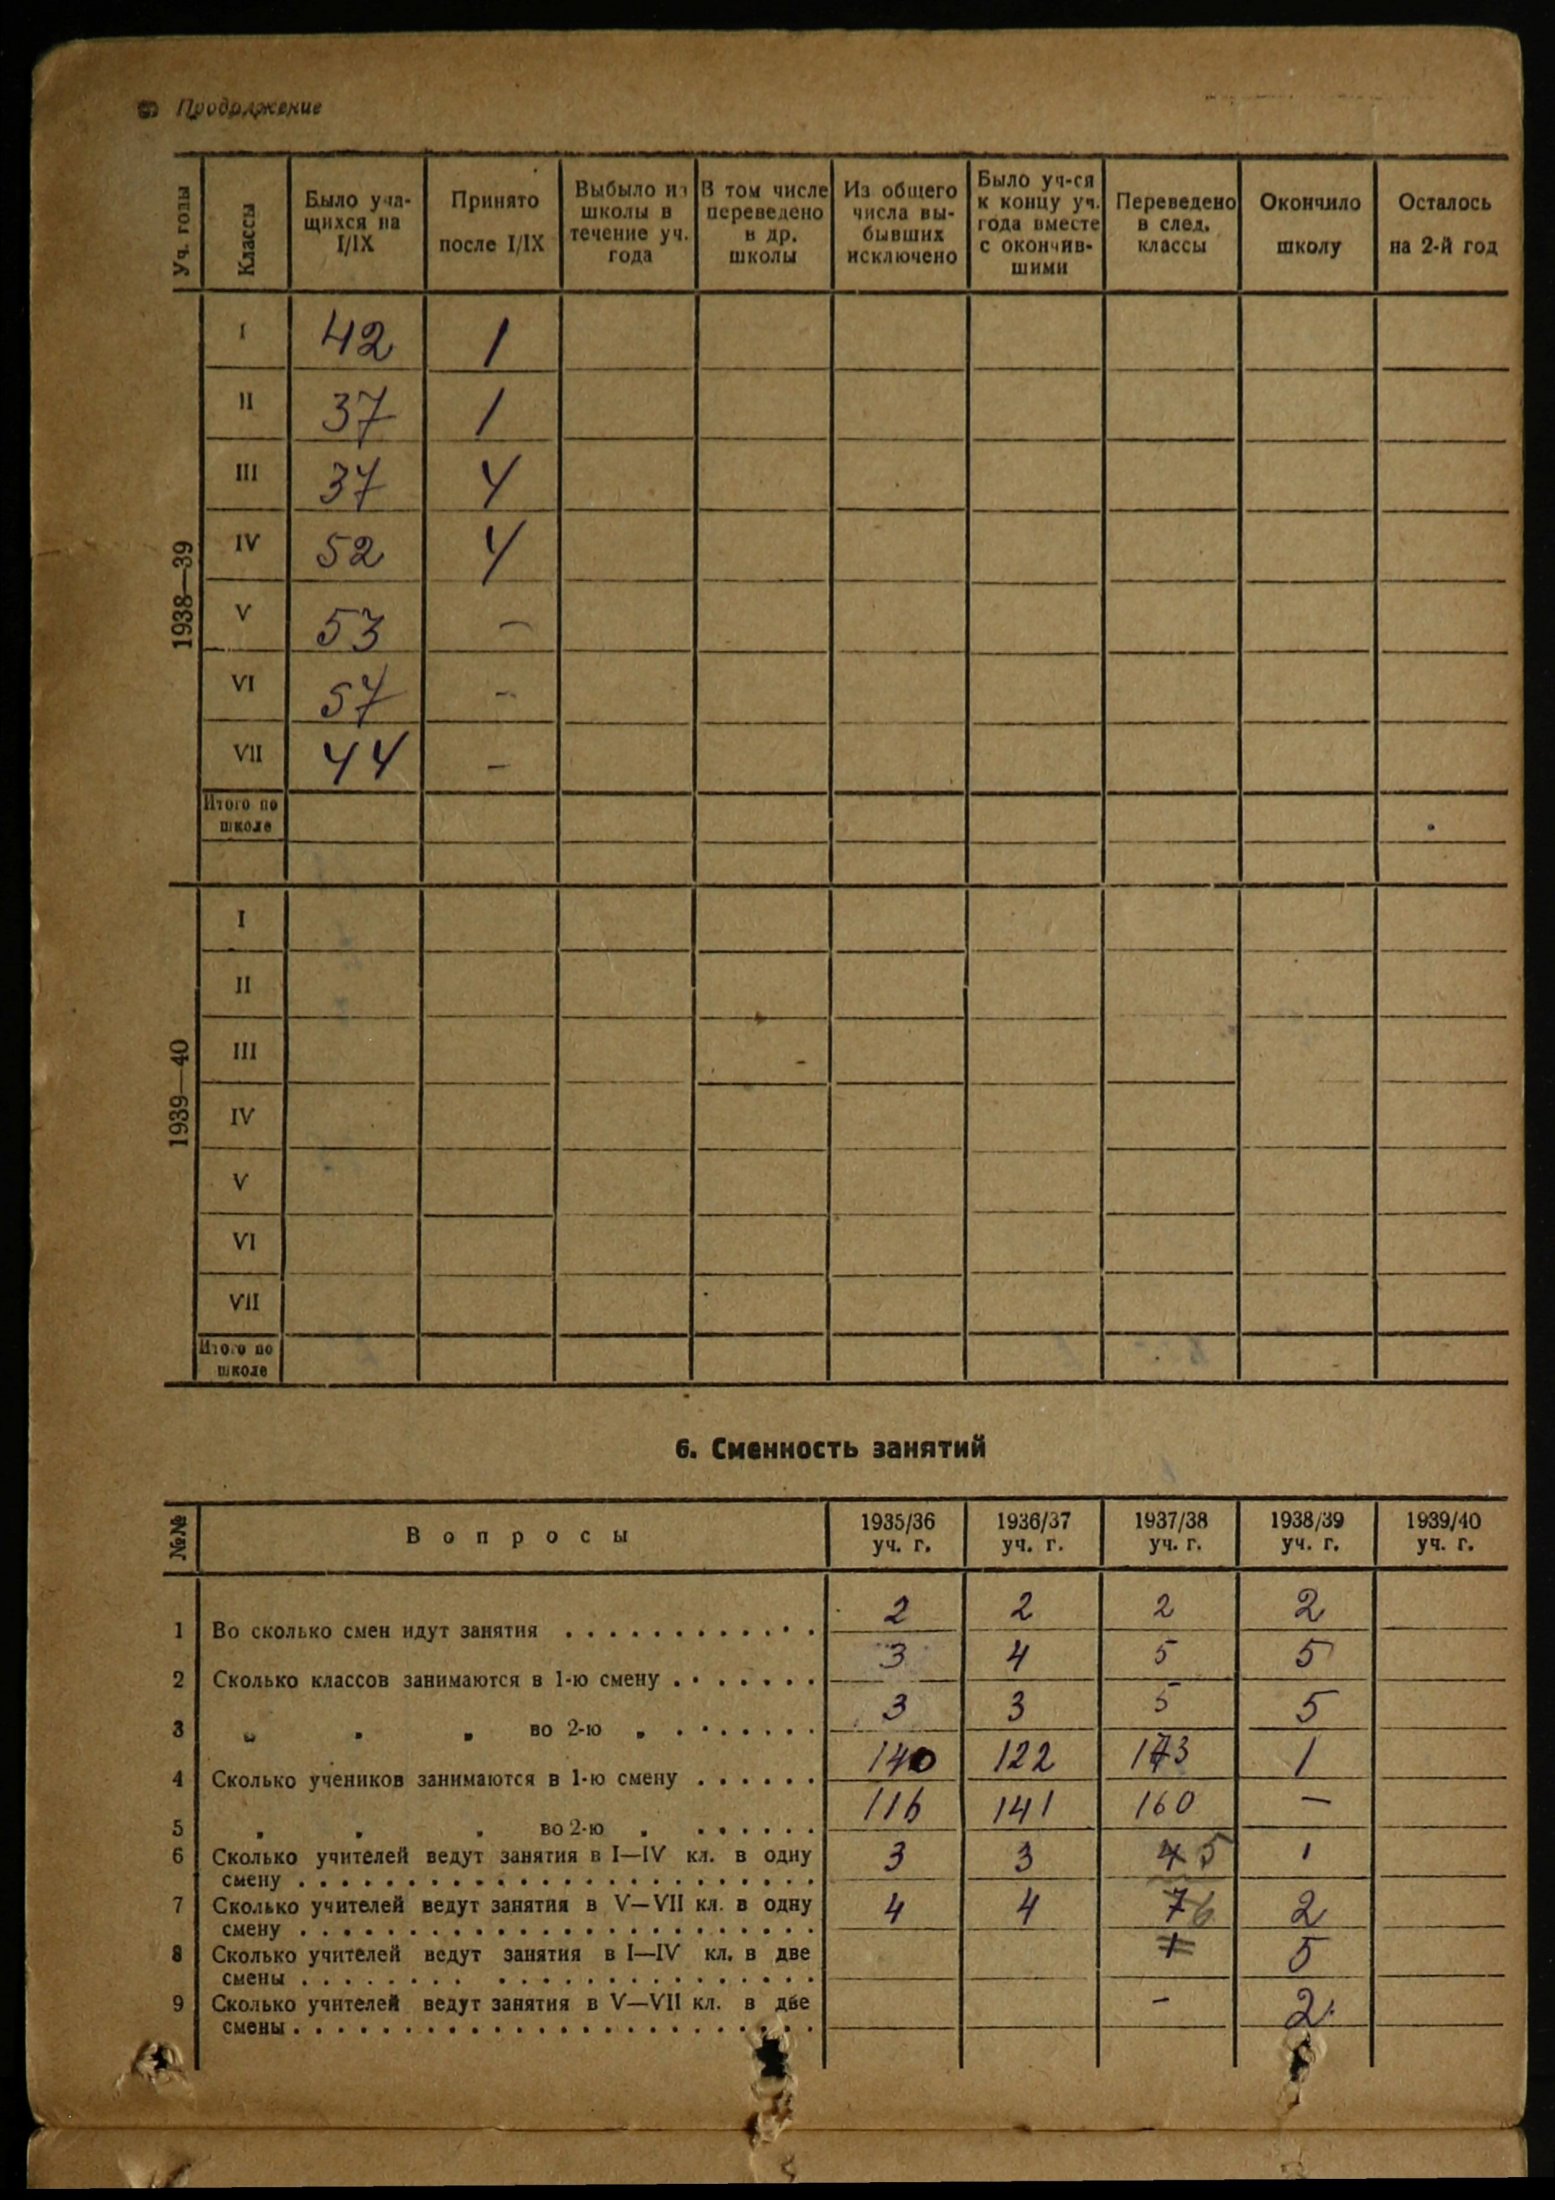 Продолжение
Уч. годы | Классы | Было уча-щихся на I/IX | Принято после I/IX | Выбыло из школы в течение уч. года | В том числе переведено в др. школы | Из общего числа вы-бывших исключено | Было уч-ся к концу уч. года вместе с окончив-шими | Переведено в след. классы | Окончило школу | Осталось на 2-й год
1938—39
I 42 1
II 37 1
III 37 4
IV 52 4
V 53 —
VI 57 -
VII 44 —
Итого по школе
1939—40
I
II
III
IV
V
VI
VII
Итого по школе
6. Сменность занятий
№№ | Вопросы | 1935/36 уч. г. | 1936/37 уч. г. | 1937/38 уч. г. | 1938/39 уч. г. | 1939/40 уч. г.
1 Во сколько смен идут занятия . . . . . . . . . . . . 2 2 2 2
2 Сколько классов занимаются в 1-ю смену . . . . . . . 3 4 5 5
3 „ „ „ во 2-ю „ . . . . . . . 3 3 5 5
4 Сколько учеников занимаются в 1-ю смену . . . . . . 140 122 173 1
5 „ „ „ во 2-ю „ . . . . . . 116 141 160 —
6 Сколько учителей ведут занятия в I—IV кл. в одну
смену . . . . . . . . . . . . . . . . . . . . . . . 3 3 4 5 1
7 Сколько учителей ведут занятия в V—VII кл. в одну
смену . . . . . . . . . . . . . . . . . . . . . . . 4 4 7 6 2
8 Сколько учителей ведут занятия в I—IV кл. в две
смены . . . . . . . . . . . . . . . . . . . . . . . 5
9 Сколько учителей ведут занятия в V—VII кл. в две
смены . . . . . . . . . . . . . . . . . . . . . . . — 2